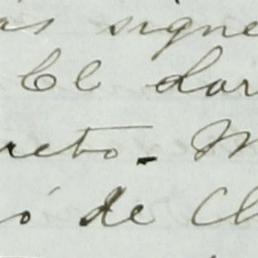 as signe
El dar
reto. M
ó de Ch